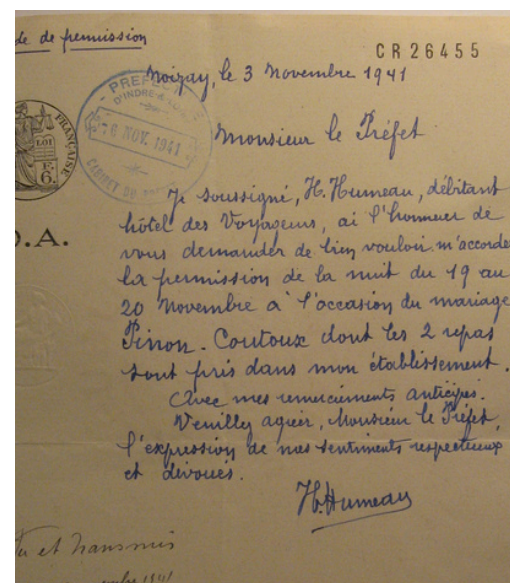 de de permission
CR26455
Noizay, le 3 Novembre 1941
PREFECTURE
D'INDRE-&-LOIRE
6 NOV. 1941
CABINET DU
LOI
FRANÇAISE
F.
6.
Monsieur le Préfet
Je soussigné, H. Humeau, débitant
hôtel des Voyageurs, ai l'honneur de
vous demander de bien vouloir m'accorde
la permission de la nuit du 19 au
20 Novembre à l'occasion du mariage
Pinon-Coutoux dont les 2 repas
sont pris dans mon établissement.
Avec mes remerciements anticipés.
Veuillez agréer, Monsieur le Préfet,
l'expression de mes sentiments respectueux
et dévoués.
H. Humeau
D.A.
Vu et transmis
1941